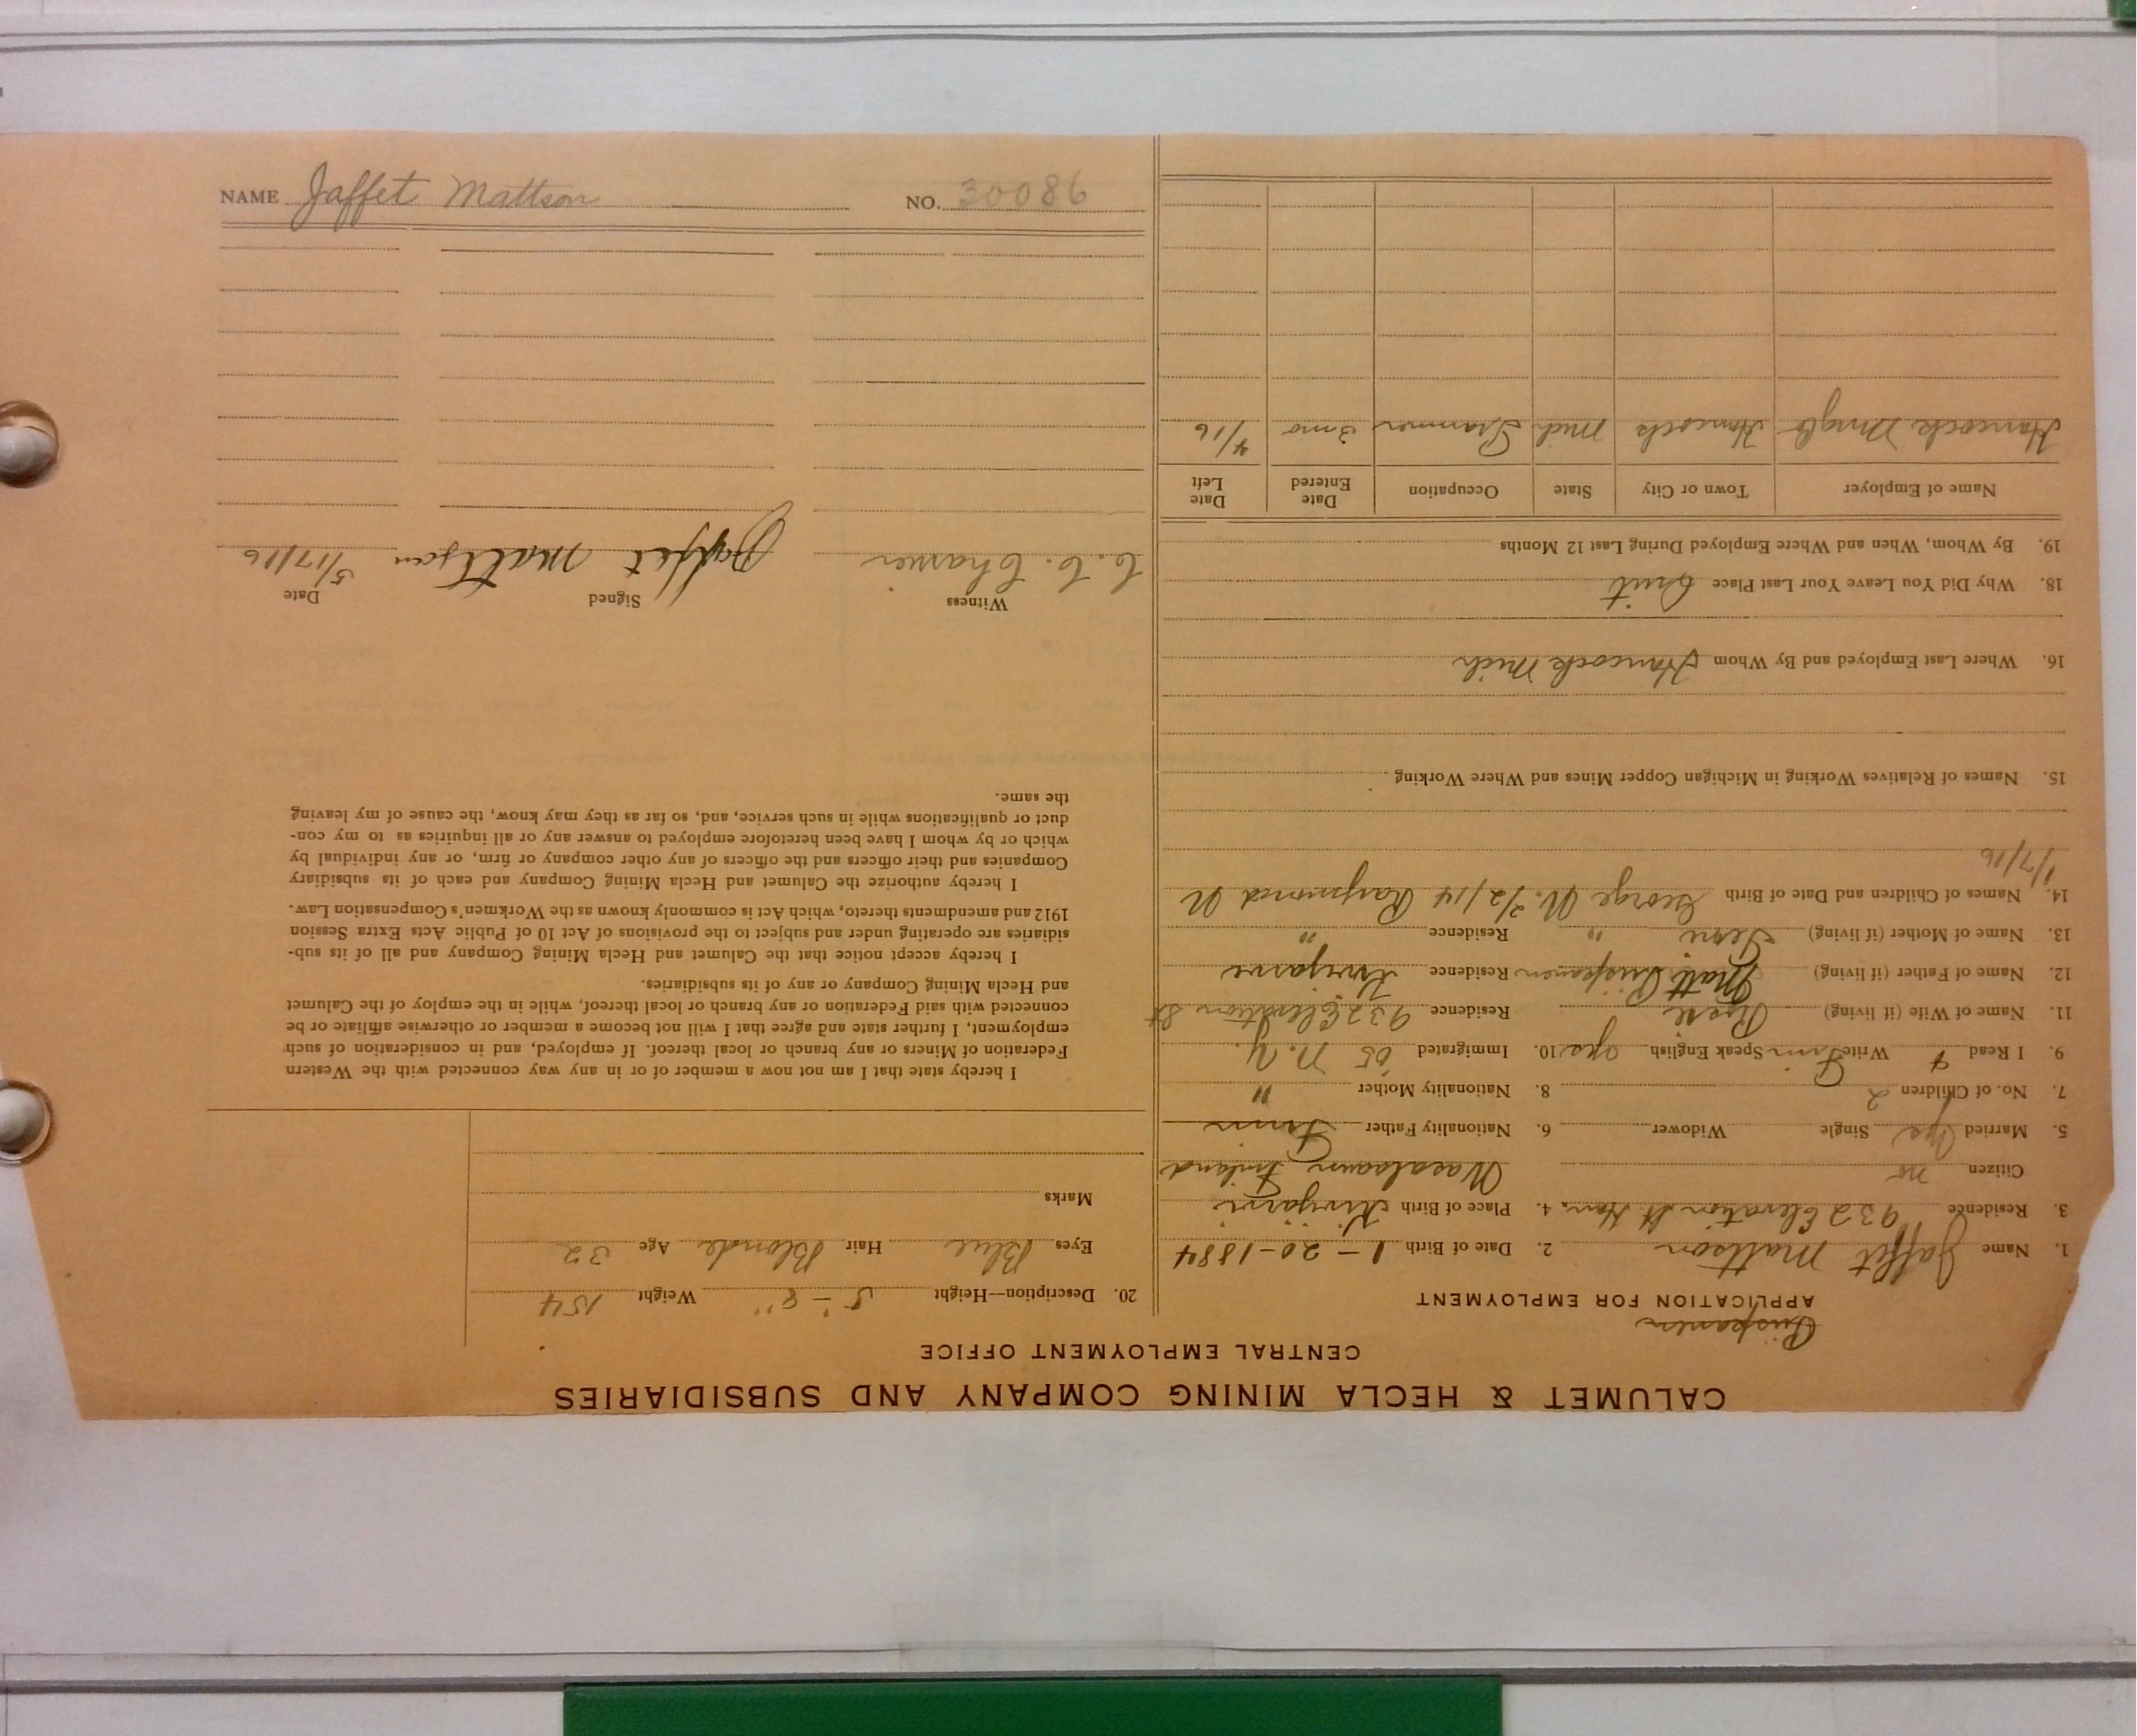 CALUMET & HECLA MINING COMPANY AND SUBSIDIARIES
CENTRAL EMPLOYMENT OFFICE
APPLICATION FOR EMPLOYMENT
1. Name Jaffet Mattson 2. Date of Birth 1-20-1884
3. Residence 932 Elevation St Han. 4. Place of Birth Kivijarvi
Citizen no Wasalaann Finland
5. Married Yes Single Widower 6. Nationality Father Finn
7. No. of Children 2 8. Nationality Mother "
9. I Read & Write Finn Speak English yes 10. Immigrated 05 N.Y.
11. Name of Wife (if living) Rose Residence 932 Elevation St
12. Name of Father (if living) Matt Residence
13. Name of Mother (if living) " Residence "
14. Names of Children and Date of Birth George M. 2/2/14 Raymond M
1/7/16
15. Names of Relatives Working in Michigan Copper Mines and Where Working
16. Where Last Employed and By Whom Hancock Mich
18. Why Did You Leave Your Last Place Quit
19. By Whom, When and Where Employed During Last 12 Months
Name of Employer Town or City State Occupation Date Entered Date Left
Hancock Hancock Mich Trammer 3 mo 4/16
20. Description—Height 5'-8" Weight 154
Eyes Blue Hair Blonde Age 32
Marks
I hereby state that I am not now a member of or in any way connected with the Western
Federation of Miners or any branch or local thereof. If employed, and in consideration of such
employment, I further state and agree that I will not become a member or otherwise affiliate or be
connected with said Federation or any branch or local thereof, while in the employ of the Calumet
and Hecla Mining Company or any of its subsidiaries.
I hereby accept notice that the Calumet and Hecla Mining Company and all of its sub-
sidiaries are operating under and subject to the provisions of Act 10 of Public Acts Extra Session
1912 and amendments thereto, which Act is commonly known as the Workmen's Compensation Law.
I hereby authorize the Calumet and Hecla Mining Company and each of its subsidiary
Companies and their officers and the officers of any other company or firm, or any individual by
which or by whom I have been heretofore employed to answer any or all inquiries as to my con-
duct or qualifications while in such service, and, so far as they may know, the cause of my leaving
the same.
Witness Signed Date
C. C. Jaffet Mattson 5/17/16
NAME Jaffet Mattson NO. 30086